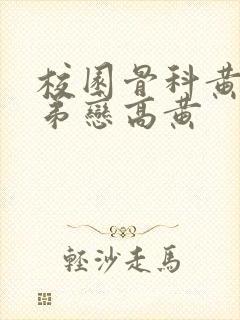 校園骨科黃
弟戀高黃
輕沙走馬